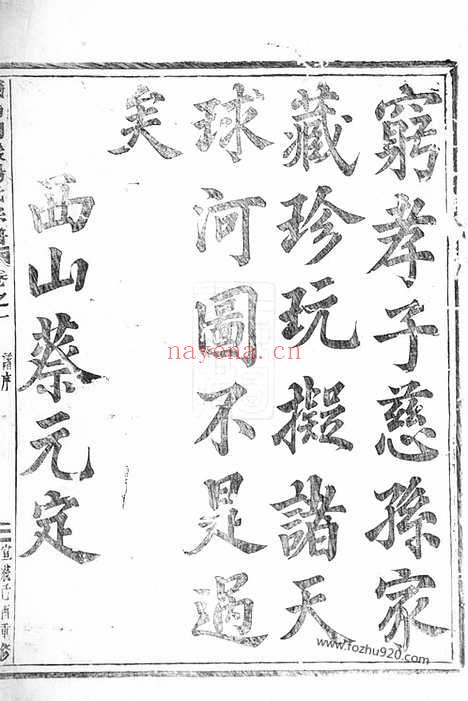 窮孝子慈孫家
藏珍玩擬諸天
球河圖不是過
矣
西山蔡元定
諸序
nayona.cn
www.fozhu920.com